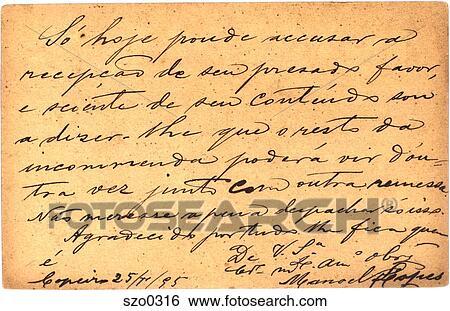 So hoje poude accusar a
recepção de seu presado favor,
e sciente de seu contéúdo sou
a dizer-lhe que o resto da
incommenda poderá vir d'ou-
tra vez junto com outra remessa
Não merece a pena despachar só isso.
Agradecido por tudo lhe fica quem
é
De V. Sª
Amº obrº
Manoel Lopes
Copeiro 25/7/95
FOTOSEARCH ®
szo0316 www.fotosearch.com